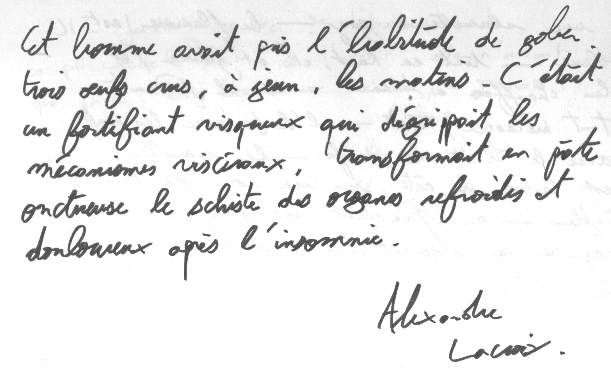 Cet homme avait pris l'habitude de gober
trois œufs crus, à jeun, les matins. C'était
un fortifiant visqueux qui dégrippait les
mécanismes viscéraux, transformait en pâte
onctueuse le schiste des organes refroidis et
douloureux après l'insomnie.
Alexandre
Lacroix.